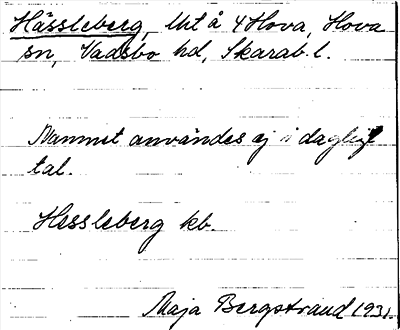 Hässleberg, Utå 4 Hova, Hova
sn, Vadsbo hd, Skarab. l.
Namnet användes ej i dagligt
tal.
Hessleberg kb.
Maja Bergstrand 1931.